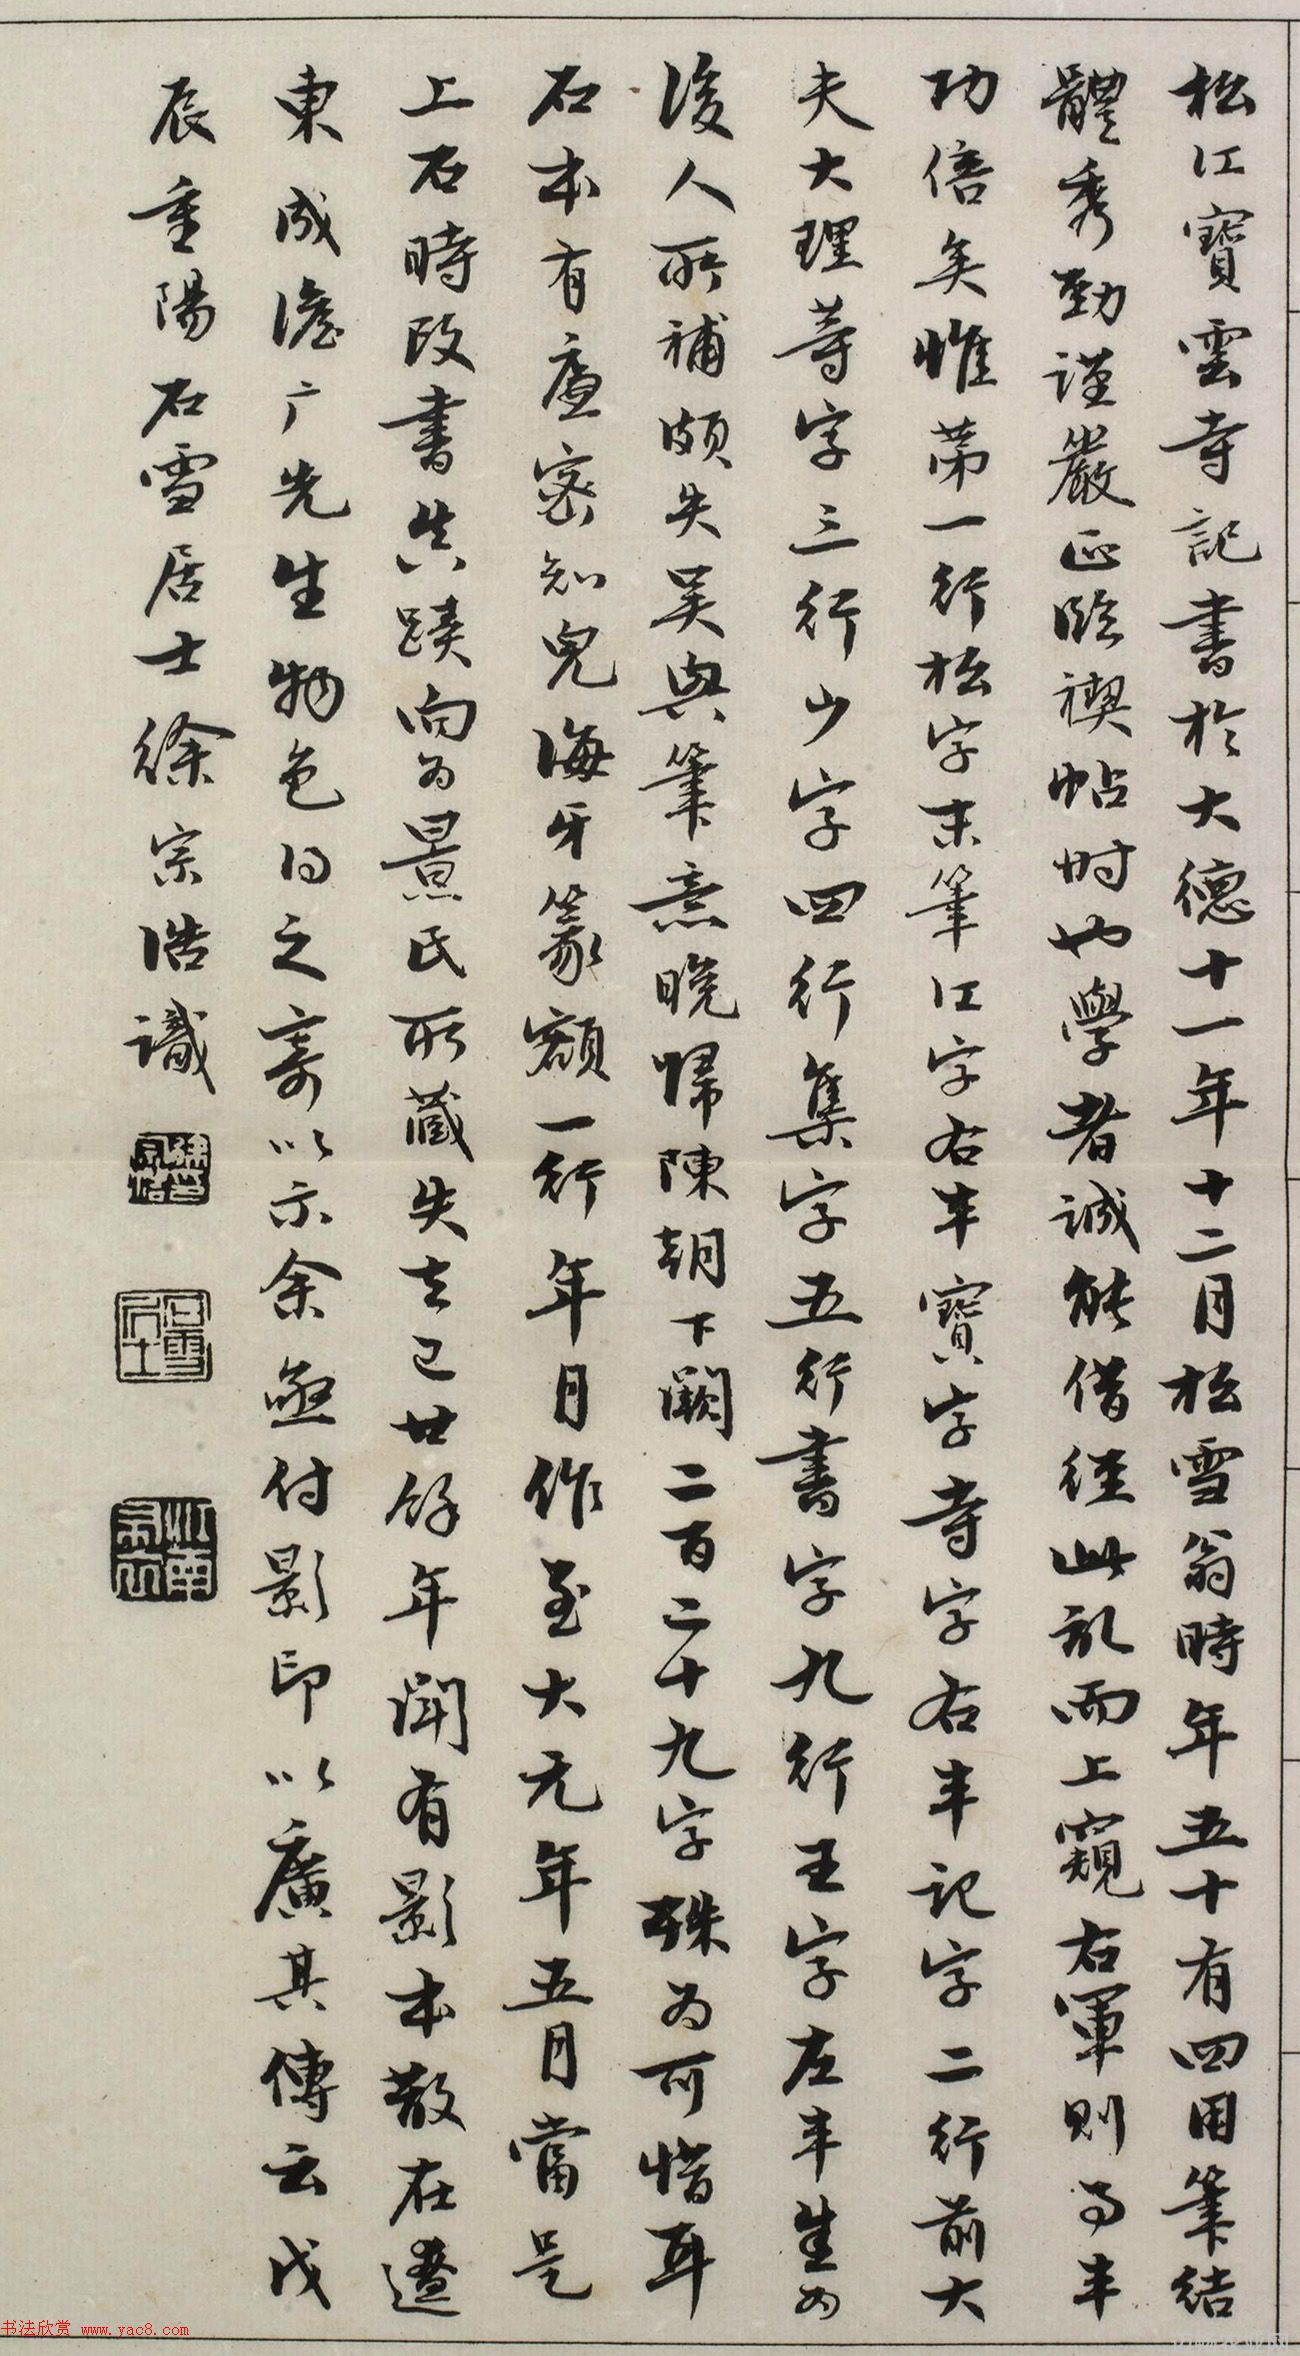 松江寶雲寺記書於大德十一年十二月松雪翁時年五十有四用筆結
體秀勁謹嚴正臨禊帖時也學者誠能借徑此記而上窺右軍則事半
功倍矣惟第一行松字末筆江字右半寶字寺字右半記字二行前大
夫大理等字三行少字四行集字五行書字九行王字左半生如
後人所補頗失吴興筆意晚歸陳朝下闕二百二十九字殊為可惜耳
石本有廉密知兒海牙篆額一行年月作至大元年五月當是
上石時改書真蹟向為景氏所藏失去已廿餘年聞有影本散在遼
東成澹广先生物色得之寄以示余亟付影印以廣其傳云戊
辰重陽石雪居士徐宗浩識
石雪居士
书法欣赏 www.yac8.com